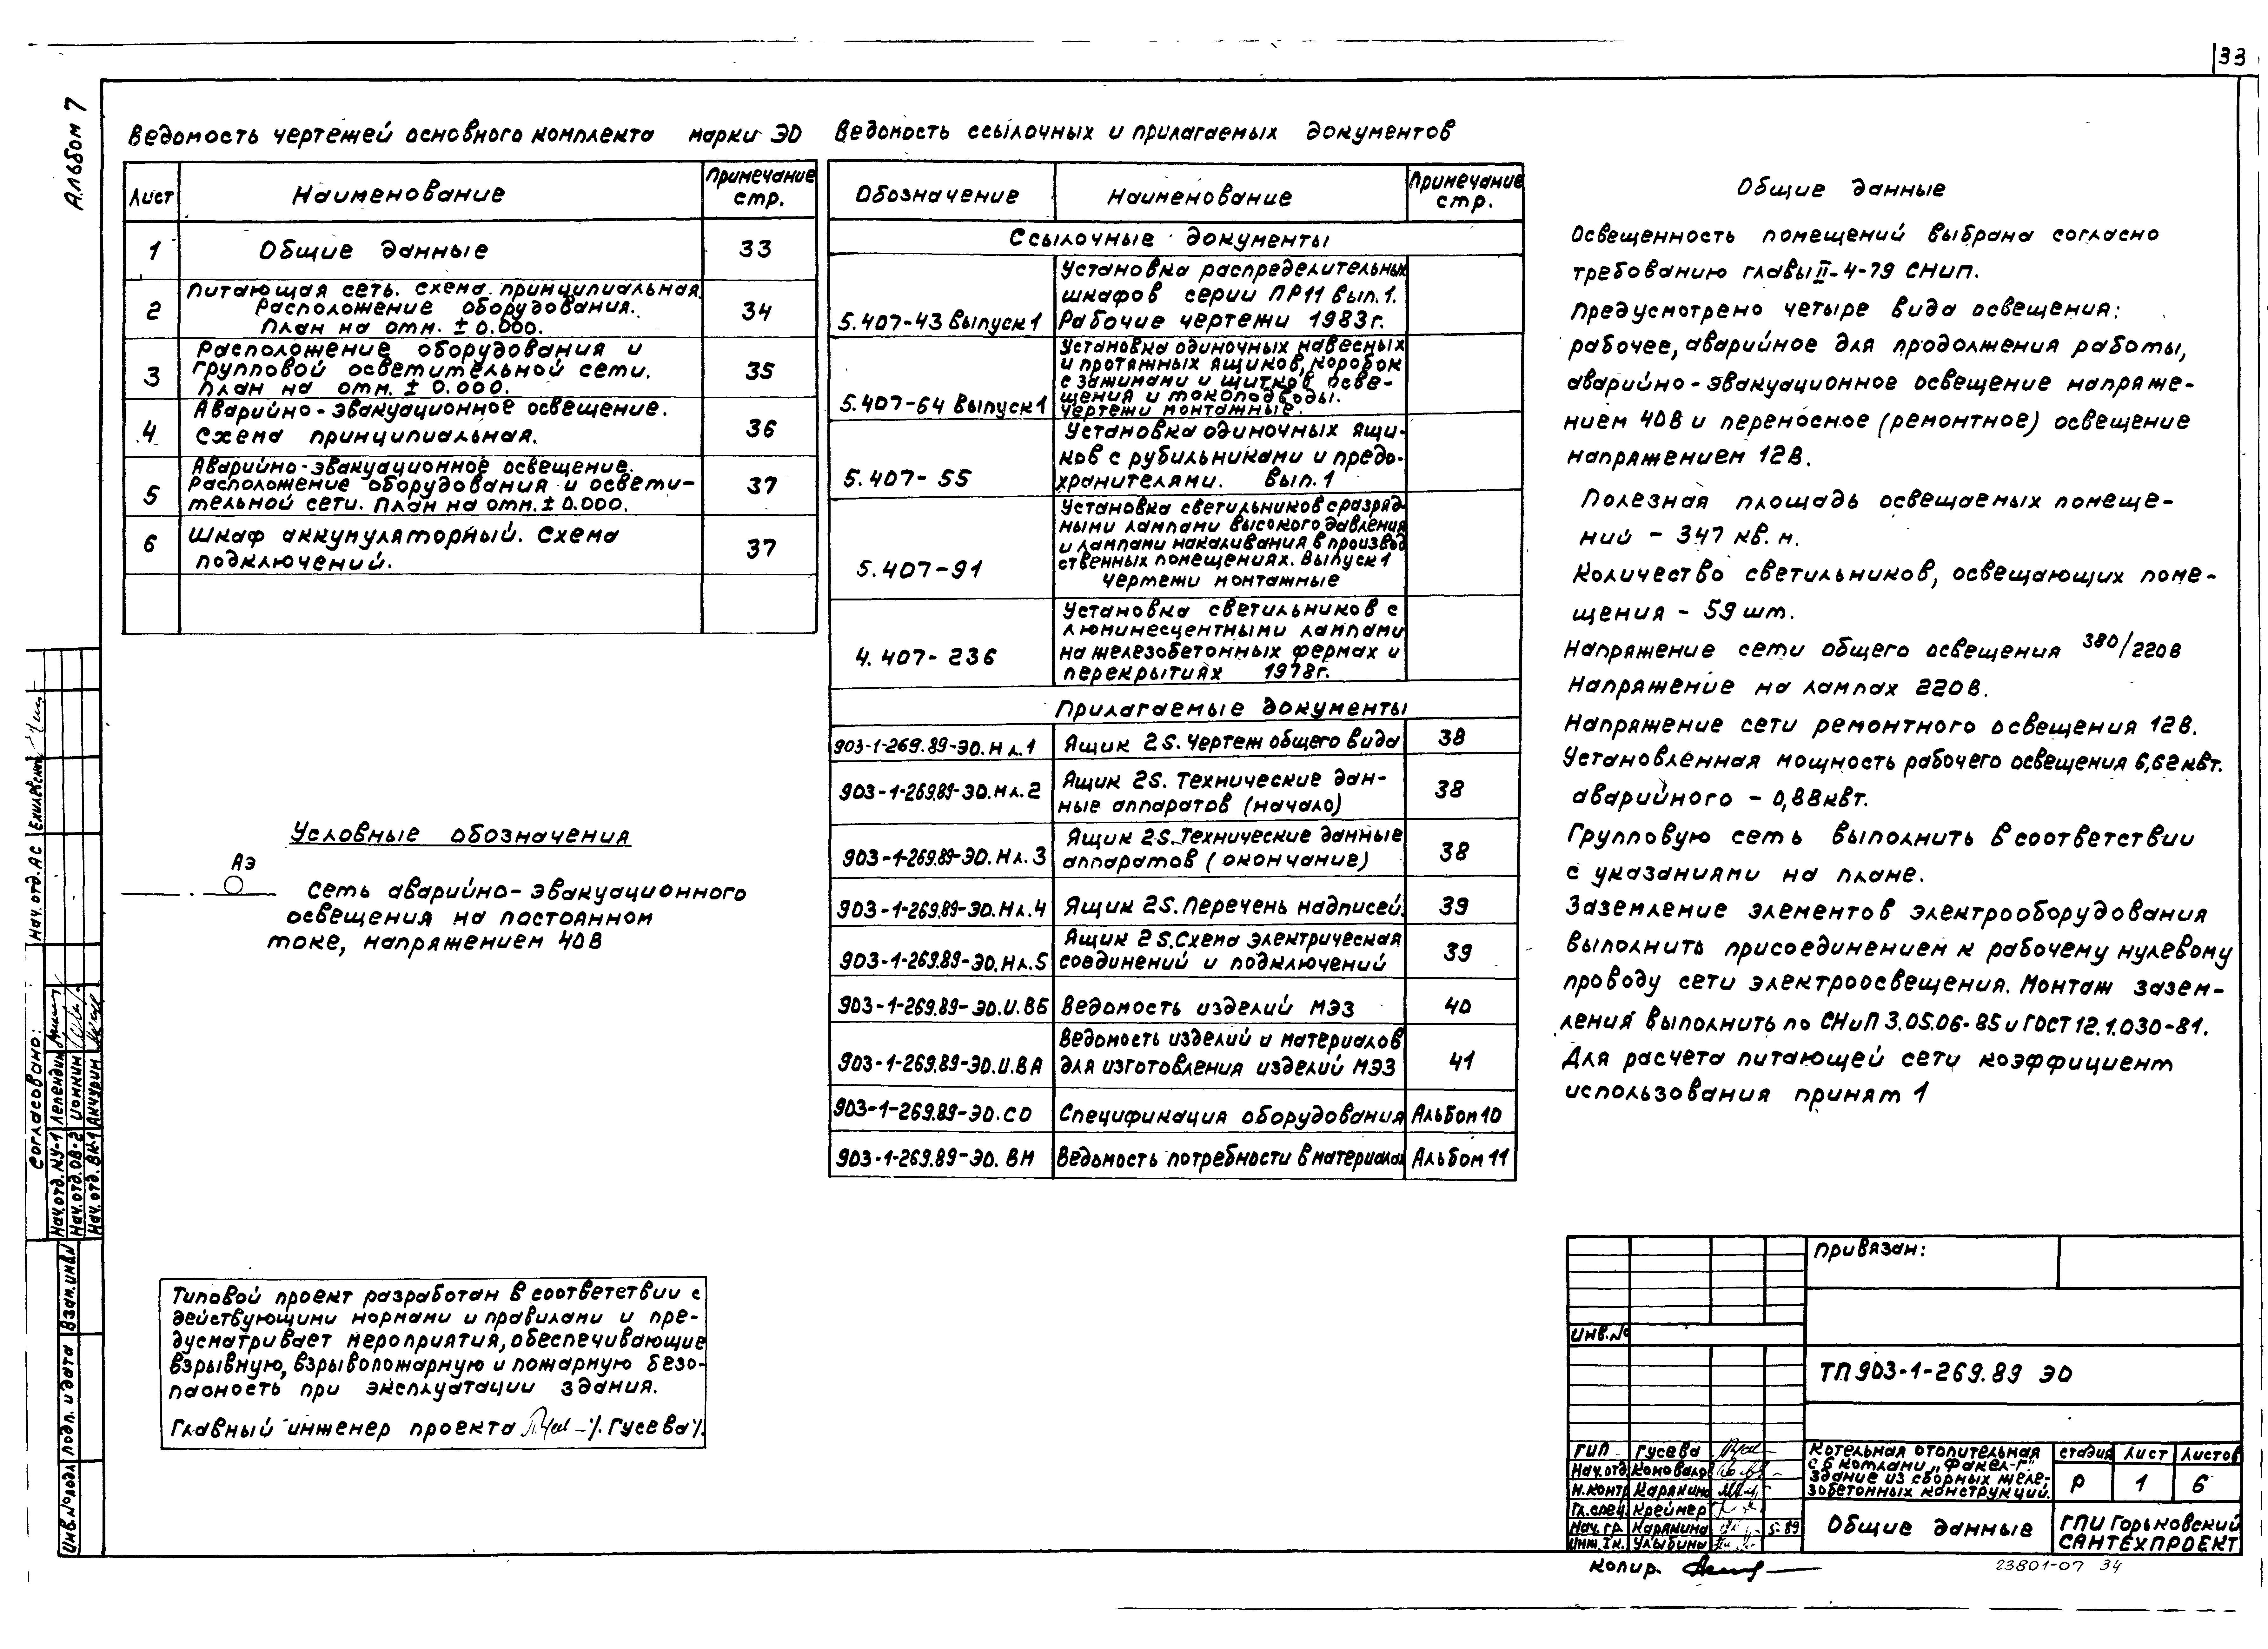 33
Альбом 7
Ведомость чертежей основного комплекта марки ЭО
Лист
Наименование
Примечание
стр.
1
Общие данные
33
2
Питающая сеть. Схема принципиальная.
Расположение оборудования.
План на отм. ± 0.000.
34
3
Расположение оборудования и
групповой осветительной сети.
План на отм. ± 0.000.
35
4
Аварийно-эвакуационное освещение.
Схема принципиальная.
36
5
Аварийно-эвакуационное освещение.
Расположение оборудования и освети-
тельной сети. План на отм. ± 0.000.
37
6
Шкаф аккумуляторный. Схема
подключений.
37
Условные обозначения
АЭ
Сеть аварийно-эвакуационного
освещения на постоянном
токе, напряжением 40В
Типовой проект разработан в соответствии с
действующими нормами и правилами и пре-
дусматривает мероприятия, обеспечивающие
взрывную, взрывопожарную и пожарную безо-
пасность при эксплуатации здания.
Главный инженер проекта /. Гусева /.
Ведомость ссылочных и прилагаемых документов
Обозначение
Наименование
Примечание
стр.
Ссылочные документы
5.407-43 Выпуск 1
Установка распределительных
шкафов серии ПР11 вып.1.
Рабочие чертежи 1983г.
5.407-64 Выпуск 1
Установка одиночных навесных
и протяжных ящиков, коробок
с зажимами и щитков осве-
щения и токоподводы.
Чертежи монтажные.
5.407-55
Установка одиночных ящи-
ков с рубильниками и предо-
хранителями. Вып.1
5.407-91
Установка светильников с разряд-
ными лампами высокого давления
и лампами накаливания в производ
ственных помещениях. Выпуск 1
Чертежи монтажные
4.407-236
Установка светильников с
люминесцентными лампами
на железобетонных фермах и
перекрытиях 1978г.
Прилагаемые документы
903-1-269.89-ЭО.Н л.1
Ящик 2S. Чертеж общего вида
38
903-1-269.89-ЭО.Н л.2
Ящик 2S. Технические дан-
ные аппаратов (начало)
38
903-1-269.89-ЭО.Н л.3
Ящик 2S. Технические данные
аппаратов (окончание)
38
903-1-269.89-ЭО.Н л.4
Ящик 2S. Перечень надписей.
39
903-1-269.89-ЭО.Н л.5
Ящик 2S. Схема электрическая
соединений и подключений
39
903-1-269.89-ЭО.И.ВБ
Ведомость изделий МЭЗ
40
903-1-269.89-ЭО.И.ВА
Ведомость изделий и материалов
для изготовления изделий МЭЗ
41
903-1-269.89-ЭО.СО
Спецификация оборудования
Альбом 10
903-1-269.89-ЭО. ВМ
Ведомость потребности в материалах
Альбом 11
Общие данные
Освещенность помещений выбрана согласно
требованию главы II-4-79 СНиП.
Предусмотрено четыре вида освещения:
рабочее, аварийное для продолжения работы,
аварийно-эвакуационное освещение напряже-
нием 40В и переносное (ремонтное) освещение
напряжением 12В.
Полезная площадь освещаемых помеще-
ний - 347 кв. м.
Количество светильников, освещающих поме-
щения - 59 шт.
Напряжение сети общего освещения 380/220В
Напряжение на лампах 220В.
Напряжение сети ремонтного освещения 12В.
Установленная мощность рабочего освещения 6,62квт.
аварийного - 0,88квт.
Групповую сеть выполнить в соответствии
с указаниями на плане.
Заземление элементов электрооборудования
выполнить присоединением к рабочему нулевому
проводу сети электроосвещения. Монтаж зазем-
ления выполнить по СНиП 3.05.06-85 и ГОСТ 12.1.030-81.
Для расчета питающей сети коэффициент
использования принят 1
Согласовано:
Нач. отд. АС
Нач. отд. КУ-1 Лепендин
Нач. отд. ОВ-2 Ионкин
Нач. отд. ВК-1 Анчурин
Взам. инв. №
Подп. и дата
Инв. № подл.
Привязан:
Инв. №
ТП 903-1-269.89 ЭО
ГИП Гусева
Нач. отд. Коновалов
Н. контр. Карякина
Гл. спец. Креймер
Нач. гр. Карякина 5.89
Инж. Iк. Улыбина
Котельная отопительная
с 6 котлами „Факел-Г"
Здание из сборных желе-
зобетонных конструкций.
Стадия Лист Листов
Р 1 6
Общие данные
ГПИ Горьковский
САНТЕХПРОЕКТ
Копир.
23801-07 34